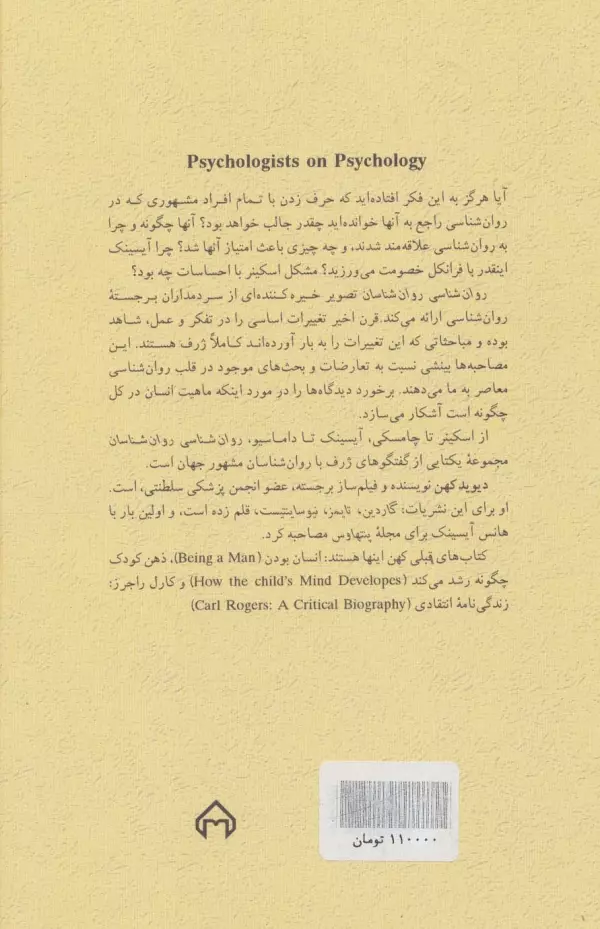 Psychologists on Psychology
آیا هرگز به این فکر افتاده‌اید که حرف زدن با تمام افراد مشهوری که در
روان‌شناسی راجع به آنها خوانده‌اید چقدر جالب خواهد بود؟ آنها چگونه و چرا
به روان‌شناسی علاقه‌مند شدند، و چه چیزی باعث امتیاز آنها شد؟ چرا آیسینک
اینقدر با فرانکل خصومت می‌ورزید؟ مشکل اسکینر با احساسات چه بود؟
روان‌شناسی روان‌شناسان تصویر خیره‌کننده‌ای از سردمداران برجستهٔ
روان‌شناسی ارائه می‌کند. قرن اخیر تغییرات اساسی را در تفکر و عمل، شاهد
بوده و مباحثاتی که این تغییرات را به بار آورده‌اند کاملاً ژرف هستند. این
مصاحبه‌ها بینشی نسبت به تعارضات و بحث‌های موجود در قلب روان‌شناسی
معاصر به ما می‌دهند. برخورد دیدگاه‌ها را در مورد اینکه ماهیت انسان در کل
چگونه است آشکار می‌سازد.
از اسکینر تا چامسکی، آیسینک تا داماسیو، روان‌شناسی روان‌شناسان
مجموعهٔ یکتایی از گفتگوهای ژرف با روان‌شناسان مشهور جهان است.
دیوید کهن نویسنده و فیلم‌ساز برجسته، عضو انجمن پزشکی سلطنتی، است.
او برای این نشریات: گاردین، تایمز، نیوساینتیست، قلم زده است، و اولین بار با
هانس آیسینک برای مجلهٔ پنتهاوس مصاحبه کرد.
کتاب‌های قبلی کهن اینها هستند: انسان بودن (Being a Man)، ذهن کودک
چگونه رشد می‌کند (How the child's Mind Developes) و کارل راجرز:
زندگی‌نامهٔ انتقادی (Carl Rogers: A Critical Biography)
۱۱۰۰۰۰ تومان